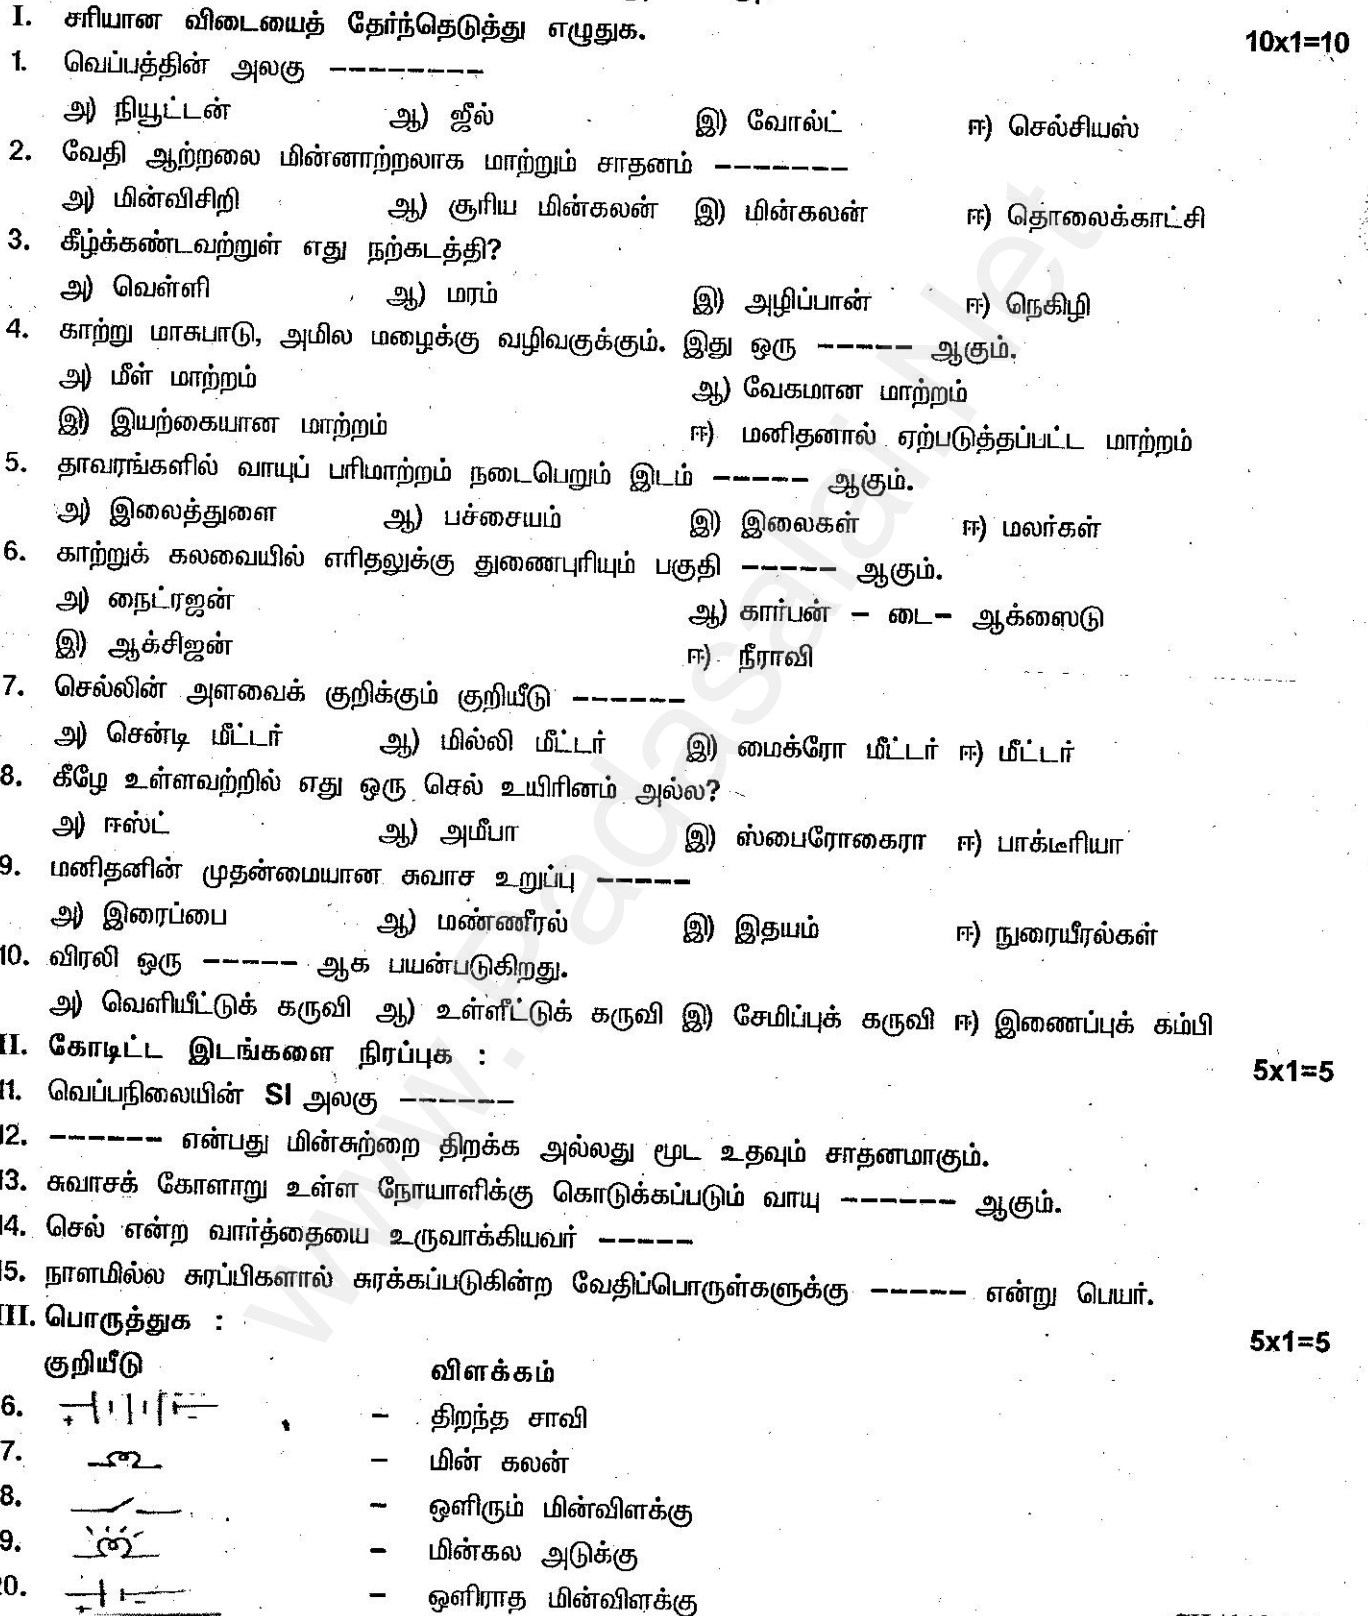 I. சரியான விடையைத் தேர்ந்தெடுத்து எழுதுக. 10x1=10
1. வெப்பத்தின் அலகு --------
அ) நியூட்டன் ஆ) ஜீல் இ) வோல்ட் ஈ) செல்சியஸ்
2. வேதி ஆற்றலை மின்னாற்றலாக மாற்றும் சாதனம் -------
அ) மின்விசிறி ஆ) சூரிய மின்கலன் இ) மின்கலன் ஈ) தொலைக்காட்சி
3. கீழ்க்கண்டவற்றுள் எது நற்கடத்தி?
அ) வெள்ளி ஆ) மரம் இ) அழிப்பான் ஈ) நெகிழி
4. காற்று மாசுபாடு, அமில மழைக்கு வழிவகுக்கும். இது ஒரு ----- ஆகும்.
அ) மீள் மாற்றம் ஆ) வேகமான மாற்றம்
இ) இயற்கையான மாற்றம் ஈ) மனிதனால் ஏற்படுத்தப்பட்ட மாற்றம்
5. தாவரங்களில் வாயுப் பரிமாற்றம் நடைபெறும் இடம் ----- ஆகும்.
அ) இலைத்துளை ஆ) பச்சையம் இ) இலைகள் ஈ) மலர்கள்
6. காற்றுக் கலவையில் எரிதலுக்கு துணைபுரியும் பகுதி ----- ஆகும்.
அ) நைட்ரஜன் ஆ) கார்பன் - டை- ஆக்ஸைடு
இ) ஆக்சிஜன் ஈ) நீராவி
7. செல்லின் அளவைக் குறிக்கும் குறியீடு ------
அ) சென்டி மீட்டர் ஆ) மில்லி மீட்டர் இ) மைக்ரோ மீட்டர் ஈ) மீட்டர்
8. கீழே உள்ளவற்றில் எது ஒரு செல் உயிரினம் அல்ல?
அ) ஈஸ்ட் ஆ) அமீபா இ) ஸ்பைரோகைரா ஈ) பாக்டீரியா
9. மனிதனின் முதன்மையான சுவாச உறுப்பு -----
அ) இரைப்பை ஆ) மண்ணீரல் இ) இதயம் ஈ) நுரையீரல்கள்
10. விரலி ஒரு ----- ஆக பயன்படுகிறது.
அ) வெளியீட்டுக் கருவி ஆ) உள்ளீட்டுக் கருவி இ) சேமிப்புக் கருவி ஈ) இணைப்புக் கம்பி
II. கோடிட்ட இடங்களை நிரப்புக : 5x1=5
11. வெப்பநிலையின் SI அலகு ------
12. ------ என்பது மின்சுற்றை திறக்க அல்லது மூட உதவும் சாதனமாகும்.
13. சுவாசக் கோளாறு உள்ள நோயாளிக்கு கொடுக்கப்படும் வாயு ------ ஆகும்.
14. செல் என்ற வார்த்தையை உருவாக்கியவர் -----
15. நாளமில்ல சுரப்பிகளால் சுரக்கப்படுகின்ற வேதிப்பொருள்களுக்கு ----- என்று பெயர்.
III. பொருத்துக : 5x1=5
குறியீடு விளக்கம்
6. - திறந்த சாவி
7. - மின் கலன்
8. - ஒளிரும் மின்விளக்கு
9. - மின்கல அடுக்கு
20. - ஒளிராத மின்விளக்கு
www.Padasalai.Net